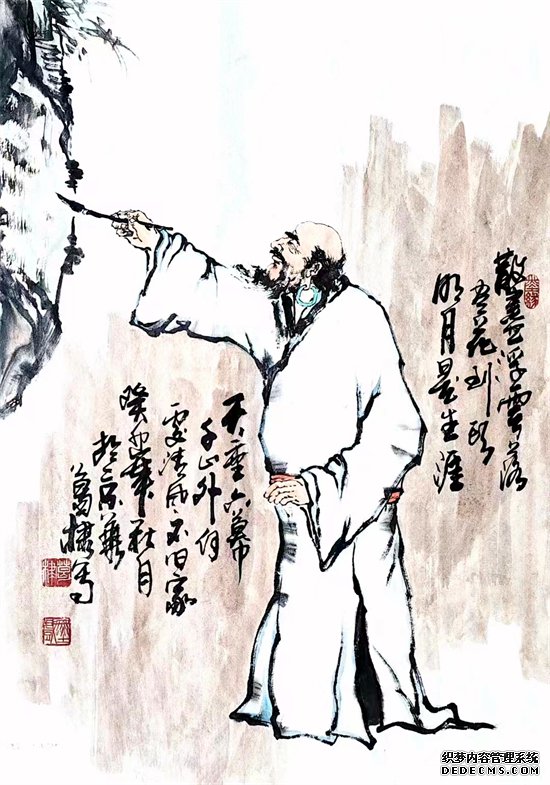 散尽浮云落
尽花到头
明月是生涯
天垂六幕
千山外何
处清风不旧家
癸卯年秋月
於京華
葛写
织梦内容管理系统
DEDECMS.COM